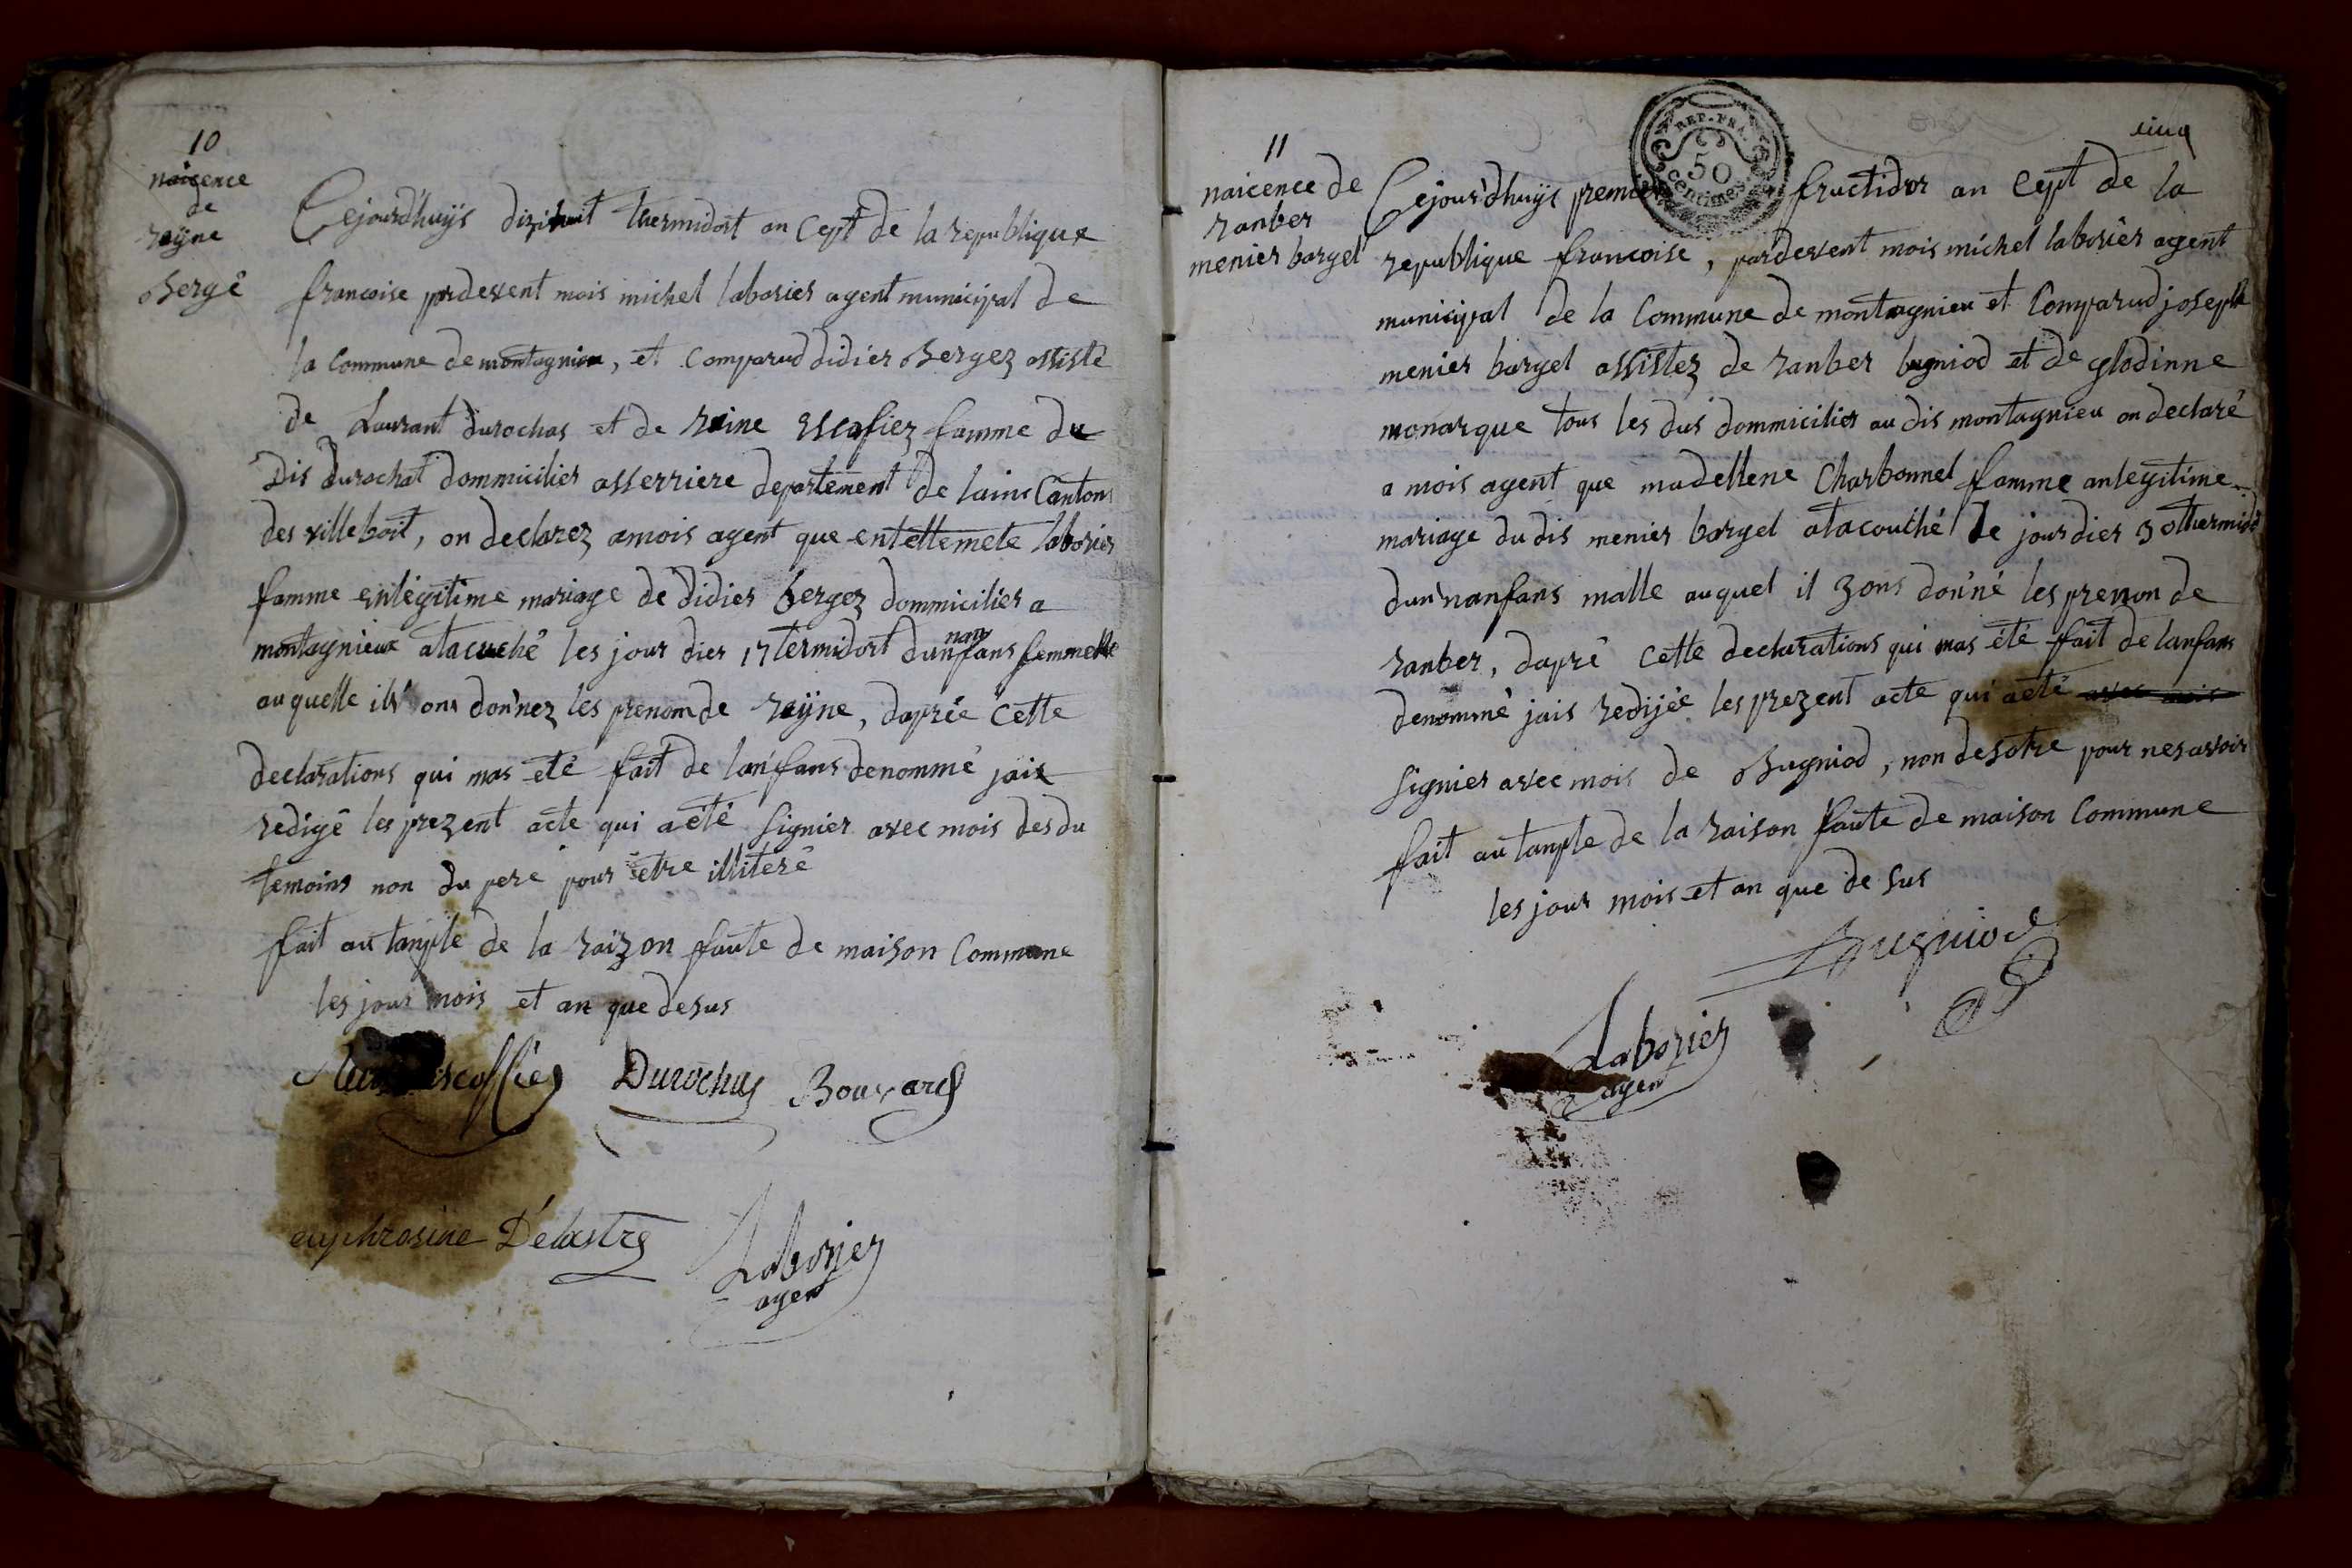 10
naicence
de
reÿne
Bergé
Cejourdhuÿs dizihuit thermidort an Cept de la republique
francoise pardevent mois michel laborier agent municipal de
la Commune de montagnieu, et comparud didier Bergez assisté
de Laurant durochas et de reine escafiez famme du
dis durochat dommicilier asserriere departement de lains Canton
des villeboit, on declarez amois agent que entettemete laborier
famme enlégitime mariage de didier bergez dommicilier a
montagnieux atacuché les jour dier 17 termidort dun nanfans femmelle
auquelle ils ons donnez les prenom de reÿne, daprée cette
declarations qui mas eté fait de lanfans denommé jaix
redigé les prezent acte qui aété signier avec mois desdu
temoins non du pere pour etre illiteré
fait au tample de la raizon faute de maison Commune
les jour mois et an que desus
escoffier Durochas Bouvard
euphrosine Délastre
Laborier
agent
cinq
REP. FRA.
50
centimes
11
naicence de
ranber
menier bargel
Cejourdhuÿs premier fructidor an Cept de la
republique francoise, pardevent mois michel laborier agent
municipal de la Commune de montagnieu et Comparud joseph
menier bargel assistez de ranber bugniod et de glodinne
monarque tous les dus dommicilier au dis montagnieu on declaré
a mois agent que madellene Charbonnel famme anlegitime
mariage du dis menier bargel atacouché le jour dier 30 thermid
dun nanfans malle auquel il zons donné les prenon de
ranber, dapré cette declarations qui mas été fait de lanfans
denommé jais redijée les prezent acte qui aété avec mois
signier avec mois de Bugniod, non desotre pour nesavoir
fait au tample de la raison faute de maison Commune
les jour mois et an que de sus
Bugniod
Laborier
agent